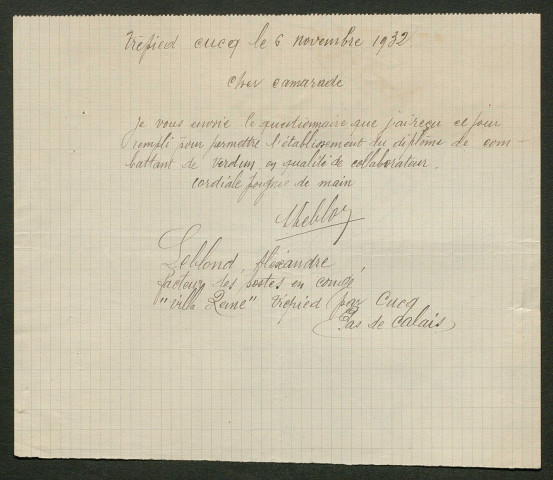 Trépied Cucq le 6 novembre 1932
Cher Camarade
Je vous envoie le questionnaire que j'ai reçu ce jour
rempli pour permettre l'établissement du diplôme de com-
battant de Verdun en qualité de collaborateur.
cordiale poignée de main
Leblond, Alexandre,
facteur des postes en congé
"villa" Trépied par Cucq
Pas de Calais